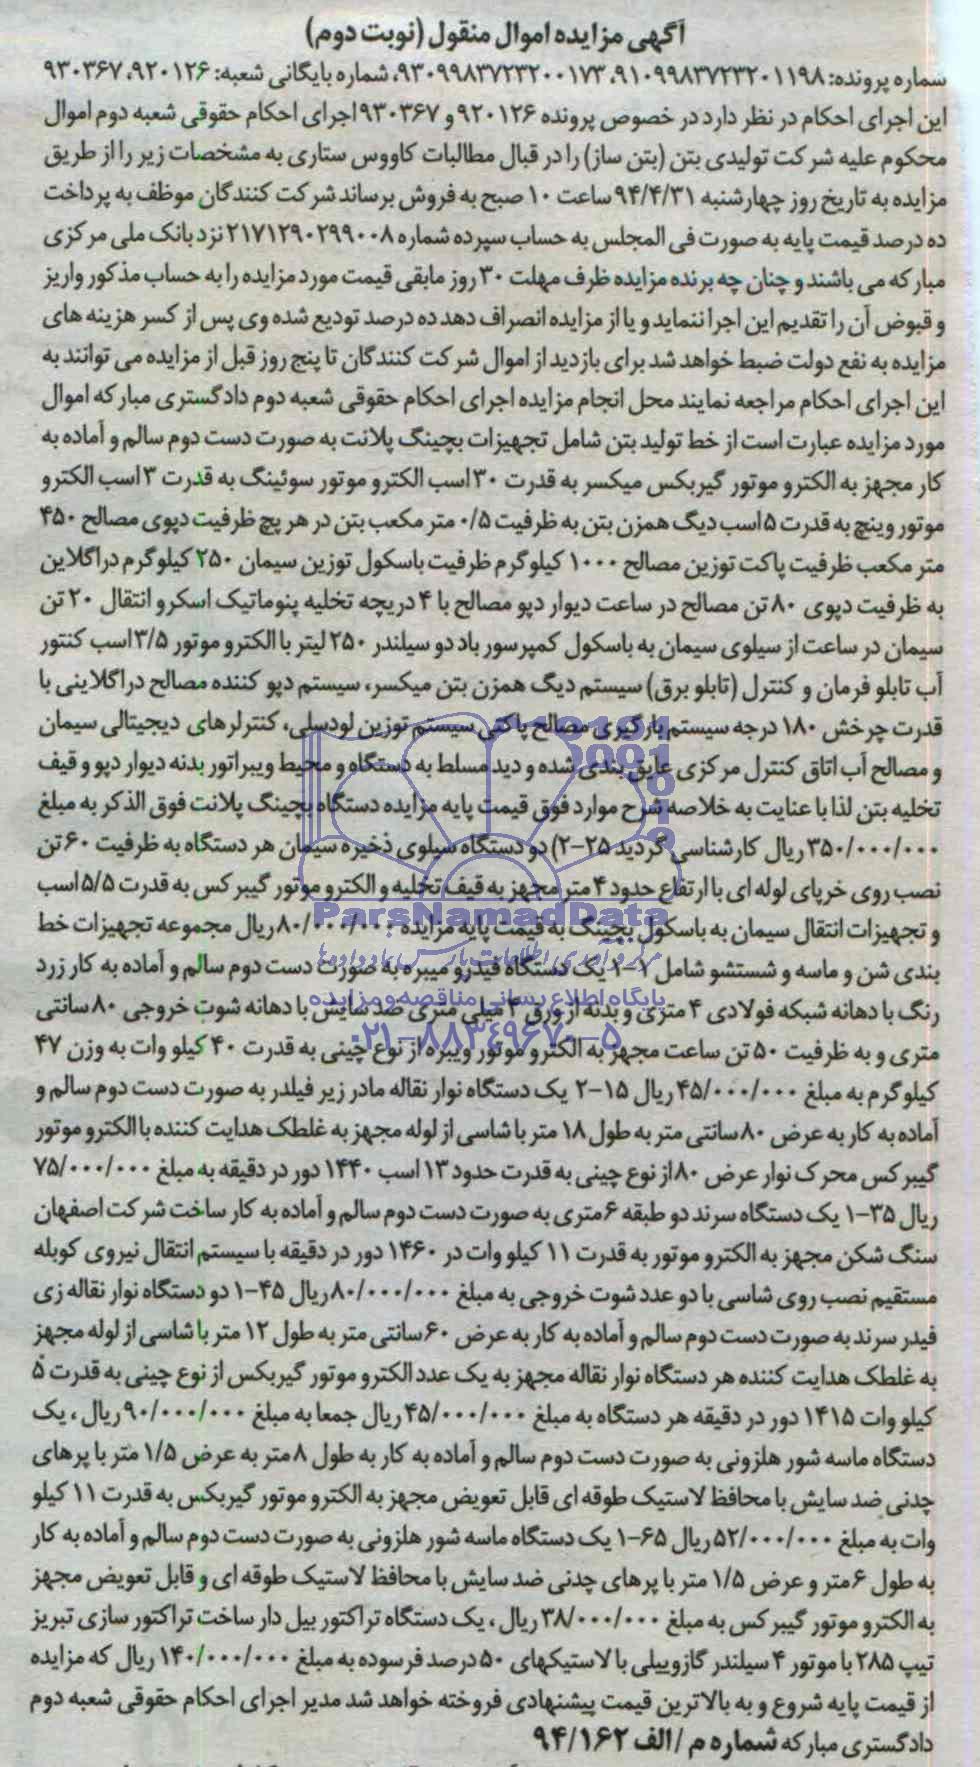 آگهی مزایده اموال منقول (نوبت دوم)
شماره پرونده: ۹۱۰۹۹۸۳۷۲۳۲۰۱۱۹۸، ۹۳۰۹۹۸۳۷۲۳۲۰۰۱۷۳، شماره بایگانی شعبه: ۹۲۰۱۲۶، ۹۳۰۳۶۷
این اجرای احکام در نظر دارد در خصوص پرونده ۹۲۰۱۲۶ و ۹۳۰۳۶۷ اجرای احکام حقوقی شعبه دوم اموال
محکوم علیه شرکت تولیدی بتن (بتن ساز) را در قبال مطالبات کاووس ستاری به مشخصات زیر را از طریق
مزایده به تاریخ روز چهارشنبه ۹۴/۴/۳۱ ساعت ۱۰ صبح به فروش برساند شرکت کنندگان موظف به پرداخت
ده درصد قیمت پایه به صورت فی المجلس به حساب سپرده شماره ۲۱۷۱۲۹۰۲۹۹۰۰۸ نزد بانک ملی مرکزی
مبارکه می باشند و چنان چه برنده مزایده ظرف مهلت ۳۰ روز مابقی قیمت مورد مزایده را به حساب مذکور واریز
و قبوض آن را تقدیم این اجرا ننماید و یا از مزایده انصراف دهد ده درصد تودیع شده وی پس از کسر هزینه های
مزایده به نفع دولت ضبط خواهد شد برای بازدید از اموال شرکت کنندگان تا پنج روز قبل از مزایده می توانند به
این اجرای احکام مراجعه نمایند محل انجام مزایده اجرای احکام حقوقی شعبه دوم دادگستری مبارکه اموال
مورد مزایده عبارت است از خط تولید بتن شامل تجهیزات بچینگ پلانت به صورت دست دوم سالم و آماده به
کار مجهز به الکترو موتور گیربکس میکسر به قدرت ۳۰ اسب الکترو موتور سوئینگ به قدرت ۳ اسب الکترو
موتور وینچ به قدرت ۵ اسب دیگ همزن بتن به ظرفیت ۰/۵ متر مکعب بتن در هر پچ ظرفیت دپوی مصالح ۴۵۰
متر مکعب ظرفیت پاکت توزین مصالح ۱۰۰۰ کیلوگرم ظرفیت باسکول توزین سیمان ۲۵۰ کیلوگرم دراگلاین
به ظرفیت دپوی ۸۰ تن مصالح در ساعت دیوار دپو مصالح با ۴ دریچه تخلیه پنوماتیک اسکرو انتقال ۲۰ تن
سیمان در ساعت از سیلوی سیمان به باسکول کمپرسور باد دو سیلندر ۲۵۰ لیتر با الکترو موتور ۳/۵ اسب کنتور
آب تابلو فرمان و کنترل (تابلو برق) سیستم دیگ همزن بتن میکسر، سیستم دپو کننده مصالح دراگلاینی با
قدرت چرخش ۱۸۰ درجه سیستم بارگیری مصالح پاکتی سیستم توزین لودسلی، کنترلرهای دیجیتالی سیمان
و مصالح آب اتاق کنترل مرکزی عایق بندی شده و دید مسلط به دستگاه و محیط ویبراتور بدنه دیوار دپو و قیف
تخلیه بتن لذا با عنایت به خلاصه شرح موارد فوق قیمت پایه مزایده دستگاه بچینگ پلانت فوق الذکر به مبلغ
۳۵۰/۰۰۰/۰۰۰ ریال کارشناسی گردید ۲۵-۲) دو دستگاه سیلوی ذخیره سیمان هر دستگاه به ظرفیت ۶۰ تن
نصب روی خرپای لوله ای با ارتفاع حدود ۴ متر مجهز به قیف تخلیه و الکترو موتور گیربکس به قدرت ۵/۵ اسب
و تجهیزات انتقال سیمان به باسکول بچینگ به قیمت پایه مزایده ۸۰/۰۰۰/۰۰۰ ریال مجموعه تجهیزات خط
بندی شن و ماسه و شستشو شامل ۱-۱ یک دستگاه فیدرو میبره به صورت دست دوم سالم و آماده به کار زرد
رنگ با دهانه شبکه فولادی ۴ متری و بدنه از ورق ۴ میلی متری ضد سایش با دهانه شوت خروجی ۸۰ سانتی
متری و به ظرفیت ۵۰ تن ساعت مجهز به الکترو موتور ویبره از نوع چینی به قدرت ۴۰ کیلو وات به وزن ۴۷
کیلوگرم به مبلغ ۴۵/۰۰۰/۰۰۰ ریال ۱۵-۲ یک دستگاه نوار نقاله مادر زیر فیلدر به صورت دست دوم سالم و
آماده به کار به عرض ۸۰ سانتی متر به طول ۱۸ متر با شاسی از لوله مجهز به غلطک هدایت کننده با الکترو موتور
گیبرکس محرک نوار عرض ۸۰ از نوع چینی به قدرت حدود ۱۳ اسب ۱۴۴۰ دور در دقیقه به مبلغ ۷۵/۰۰۰/۰۰۰
ریال ۳۵-۱ یک دستگاه سرند دو طبقه ۶ متری به صورت دست دوم سالم و آماده به کار ساخت شرکت اصفهان
سنگ شکن مجهز به الکترو موتور به قدرت ۱۱ کیلو وات در ۱۴۶۰ دور در دقیقه با سیستم انتقال نیروی کوبله
مستقیم نصب روی شاسی با دو عدد شوت خروجی به مبلغ ۸۰/۰۰۰/۰۰۰ ریال ۴۵-۱ دو دستگاه نوار نقاله زی
فیدر سرند به صورت دست دوم سالم و آماده به کار به عرض ۶۰ سانتی متر به طول ۱۲ متر با شاسی از لوله مجهز
به غلطک هدایت کننده هر دستگاه نوار نقاله مجهز به یک عدد الکترو موتور گیربکس از نوع چینی به قدرت ۵
کیلو وات ۱۴۱۵ دور در دقیقه هر دستگاه به مبلغ ۴۵/۰۰۰/۰۰۰ ریال جمعا به مبلغ ۹۰/۰۰۰/۰۰۰ ریال، یک
دستگاه ماسه شور هلزونی به صورت دست دوم سالم و آماده به کار به طول ۸ متر به عرض ۱/۵ متر با پرهای
چدنی ضد سایش با محافظ لاستیک طوقه ای قابل تعویض مجهز به الکترو موتور گیربکس به قدرت ۱۱ کیلو
وات به مبلغ ۵۲/۰۰۰/۰۰۰ ریال ۶۵-۱ یک دستگاه ماسه شور هلزونی به صورت دست دوم سالم و آماده به کار
به طول ۶ متر و عرض ۱/۵ متر با پرهای چدنی ضد سایش با محافظ لاستیک طوقه ای و قابل تعویض مجهز
به الکترو موتور گیبرکس به مبلغ ۳۸/۰۰۰/۰۰۰ ریال، یک دستگاه تراکتور بیل دار ساخت تراکتور سازی تبریز
تیپ ۲۸۵ با موتور ۴ سیلندر گازوییلی با لاستیکهای ۵۰ درصد فرسوده به مبلغ ۱۴۰/۰۰۰/۰۰۰ ریال که مزایده
از قیمت پایه شروع و به بالاترین قیمت پیشنهادی فروخته خواهد شد مدیر اجرای احکام حقوقی شعبه دوم
دادگستری مبارکه شماره م/الف ۹۴/۱۶۲
ParsNamadData
پایگاه اطلاع رسانی مناقصه و مزایده
۰۲۱-۸۸۳۴۹۶۷۰-۵